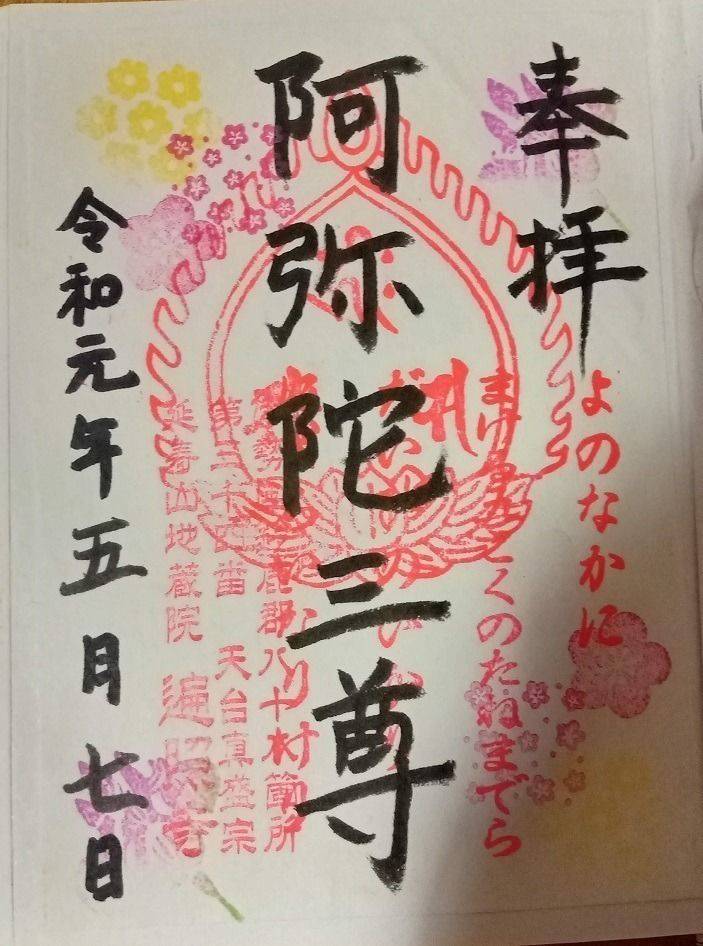 奉拝
よのなかに
くのたねまでら
阿弥陀三尊
郡八十村箇所
第三十四番 天台真盛宗
延寿山地蔵院 遍照寺
令和元年五月七日